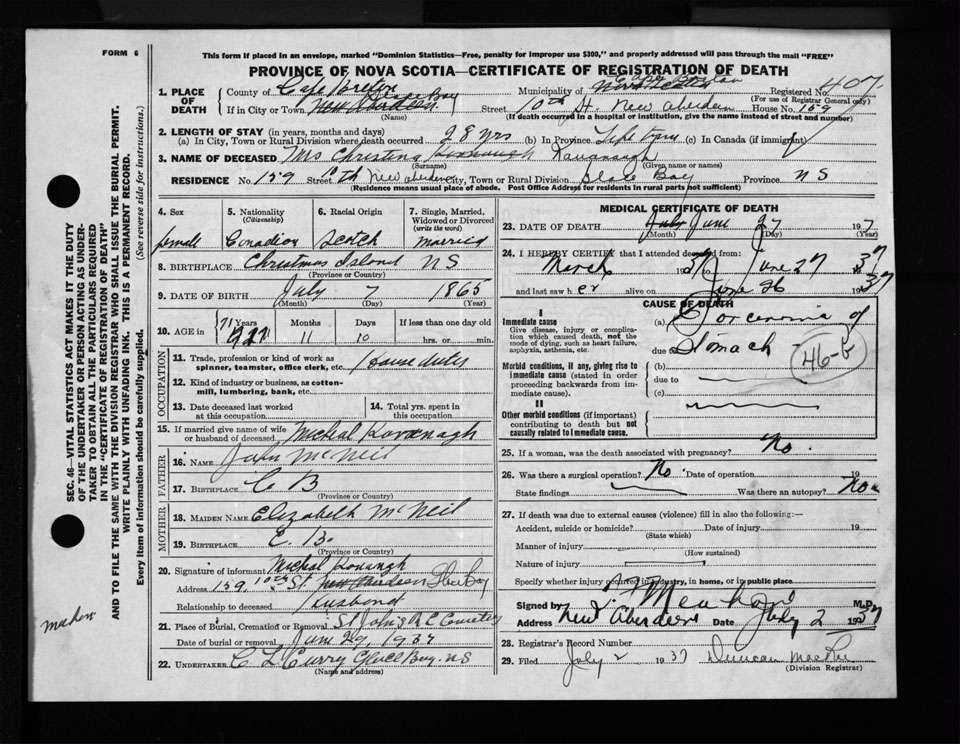 FORM 6
This form if placed in an envelope, marked "Dominion Statistics—Free, penalty for improper use $300," and properly addressed will pass through the mail "FREE"
PROVINCE OF NOVA SCOTIA—CERTIFICATE OF REGISTRATION OF DEATH
1. PLACE OF DEATH
County of Cape Breton Municipality of Cape Breton Registered No. 407
(For use of Registrar General only)
If in City or Town New Aberdeen Glace Bay Street 10th St. New Aberdeen House No. 159
(Name) (If death occurred in a hospital or institution, give the name instead of street and number)
2. LENGTH OF STAY (in years, months and days)
(a) In City, Town or Rural Division where death occurred 28 yrs (b) In Province Life time (c) In Canada (if immigrant)
3. NAME OF DECEASED Mrs Christina Kavanaugh
(Surname) (Given name or names)
RESIDENCE No. 159 Street 10th New Aberdeen City, Town or Rural Division Glace Bay Province N S
(Residence means usual place of abode. Post Office Address for residents in rural parts not sufficient)
4. Sex 5. Nationality (Citizenship) 6. Racial Origin 7. Single, Married, Widowed or Divorced (write the word)
female Canadian Scotch married
8. BIRTHPLACE Christmas Island NS
(Province or Country)
9. DATE OF BIRTH July 7 1865
(Month) (Day) (Year)
10. AGE in Years Months Days If less than one day old
71 11 10 hrs. or min.
OCCUPATION
11. Trade, profession or kind of work as spinner, teamster, office clerk, etc. House duties
12. Kind of industry or business, as cotton-mill, lumbering, bank, etc.
13. Date deceased last worked at this occupation 14. Total yrs. spent in this occupation
15. If married give name of wife or husband of deceased Michal Kavanagh
FATHER
16. NAME John McNeil
17. BIRTHPLACE C B
(Province or Country)
MOTHER
18. MAIDEN NAME Elizabeth McNeil
19. BIRTHPLACE C. B.
(Province or Country)
20. Signature of informant Michal Kavanagh
Address 159 10th St New Aberdeen Glace Bay
Relationship to deceased husband
21. Place of Burial, Cremation or Removal St John's R C Cemetery
Date of burial or removal June 29, 1937
22. UNDERTAKER C L Curry Glace Bay. NS
(Name and address)
MEDICAL CERTIFICATE OF DEATH
23. DATE OF DEATH July June 27 1937
(Month) (Day) (Year)
24. I HEREBY CERTIFY that I attended deceased from:
March 1937 to June 27 1937
and last saw her alive on June 26 1937
CAUSE OF DEATH
I
Immediate cause
Give disease, injury or complication which caused death, not the mode of dying, such as heart failure, asphyxia, asthenia, etc.
(a) Carcenoma of
due to Stomach
46-b
Morbid conditions, if any, giving rise to immediate cause (stated in order proceeding backwards from immediate cause).
(b)
due to
(c)
II
Other morbid conditions (if important) contributing to death but not causally related to immediate cause.
25. If a woman, was the death associated with pregnancy? No.
26. Was there a surgical operation? No Date of operation 19
State findings Was there an autopsy? No
27. If death was due to external causes (violence) fill in also the following:—
Accident, suicide or homicide? Date of injury 19
(State which)
Manner of injury
(How sustained)
Nature of injury
Specify whether injury occurred in industry, in home, or in public place
Signed by M.D.
Address New Aberdeen Date July 2 1937
28. Registrar's Record Number
29. Filed July 2 1937 Duncan
(Division Registrar)
SEC. 46—VITAL STATISTICS ACT MAKES IT THE DUTY
OF THE UNDERTAKER OR PERSON ACTING AS UNDERTAKER
TO OBTAIN ALL THE PARTICULARS REQUIRED
IN THE "CERTIFICATE OF REGISTRATION OF DEATH"
AND TO FILE THE SAME WITH THE DIVISION REGISTRAR WHO SHALL ISSUE THE BURIAL PERMIT.
WRITE PLAINLY WITH UNFADING INK. THIS IS A PERMANENT RECORD.
Every item of information should be carefully supplied. (See reverse side for instructions.)